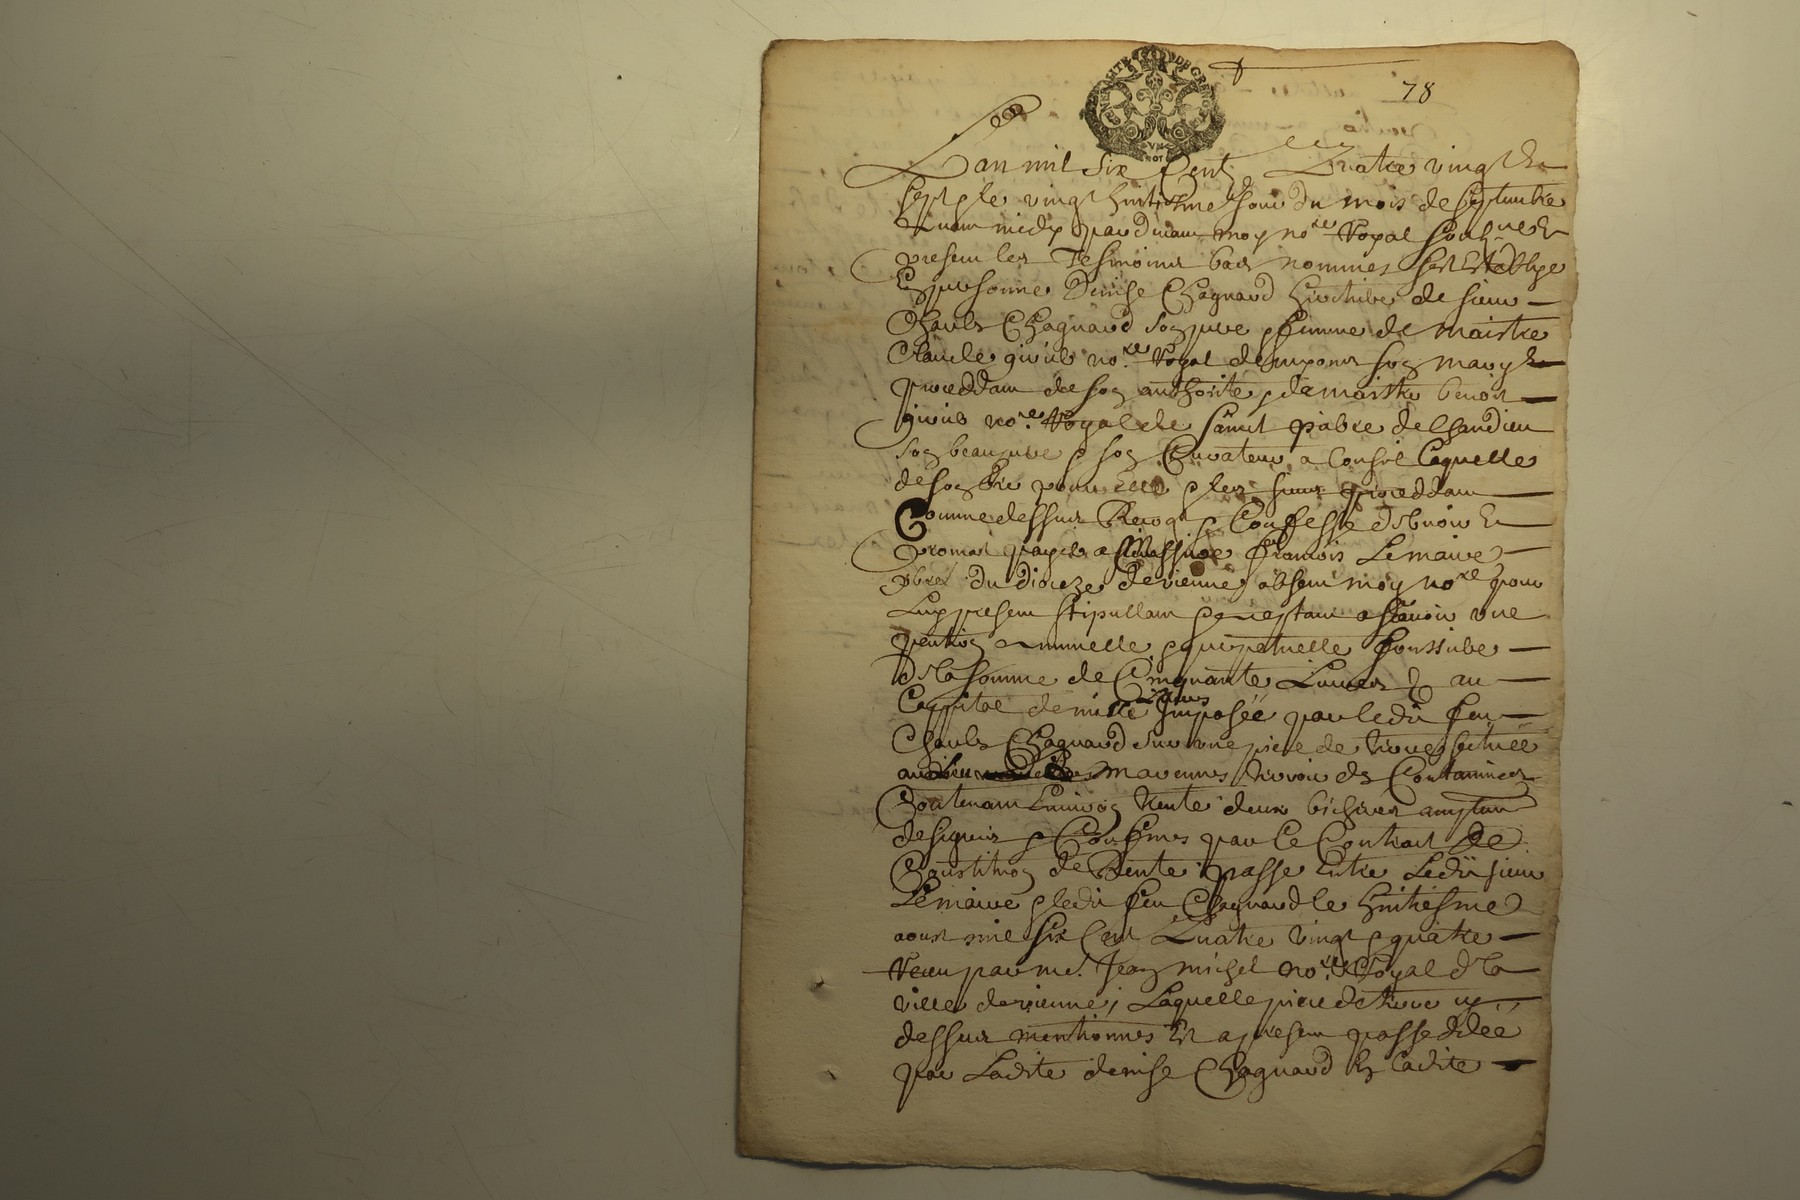 GENERALITE DE GRENOBLE
VN
NOT
78
Lan mil six Cent Quatre vingt Et
sept & le vingt huictiesme Jour du mois de septembre
auant midy pardeuant moy no.re Royal soubsigné Et
presens les Tesmoins bas nommes s'est Establye
En personne Denise Chagnard heritiere de sieur
Charles Chagnard son pere & femme de Maistre
Claude giuis no.re Royal son mary &
proceddam de son authorite & de maistre benoit
giuis no.re Royal de Saint de Chandieu
son beaupere & son Curateur a Conseil Laquelle
de son gre pour Elle & les siens proceddam
Comme dessus & Confesse debuoir Et
promet payer a Messire francois Lemaire
pbre du dioceze de vienne absent moy no.re pour
Luy present stipullam & acceptam a scauoir vne
pention annuelle & perpetuelle
de la somme de Cinquante Liures & au
Cappital de mille Liures Imposée par ledit feu
Charles Chagnard sur vne piece de située
au mas
Contenam Enuiron trente deux bicherees
designés & Confinés par le Contrat de
Constitution de Rente passe Entre Ledit sieur
Lemaire & ledit feu Chagnard le huitiesme
aoust mil six Cent Quatre vingt & quatre
Receu par me. Jean michel no.re Royal de la
ville de vienne, Laquelle piece de terre cy
dessus mentionnée Est a present possedée
par Ladite denise Chagnard En Ladite